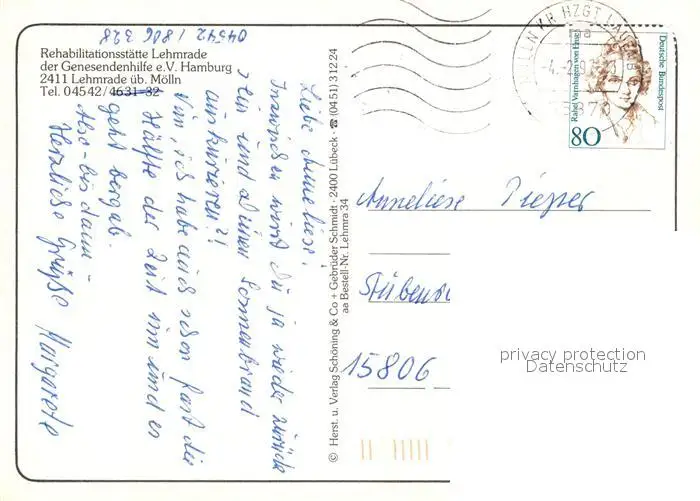 04542 / 806 328
Rehabilitationsstätte Lehmrade
der Genesendenhilfe e.V. Hamburg
2411 Lehmrade üb. Mölln
Tel. 04542/4631-32
Liebe Anneliese,
Inzwischen wirst Du ja wieder zurück
sein und Deinen Sonnenbrand
auskurieren?!
Nun, ich habe auch schon fast die
Hälfte der Zeit um und es
geht bergab.
Also - bis dann
Herzliche Grüße Margarete
© Herst. u. Verlag Schöning & Co + Gebrüder Schmidt · 2400 Lübeck · ☎ (04 51) 3 12 24
aa Bestell-Nr. Lehmra 34
Deutsche Bundespost
Rahel Varnhagen von Ense
80
Anneliese
15806
privacy protection
Datenschutz